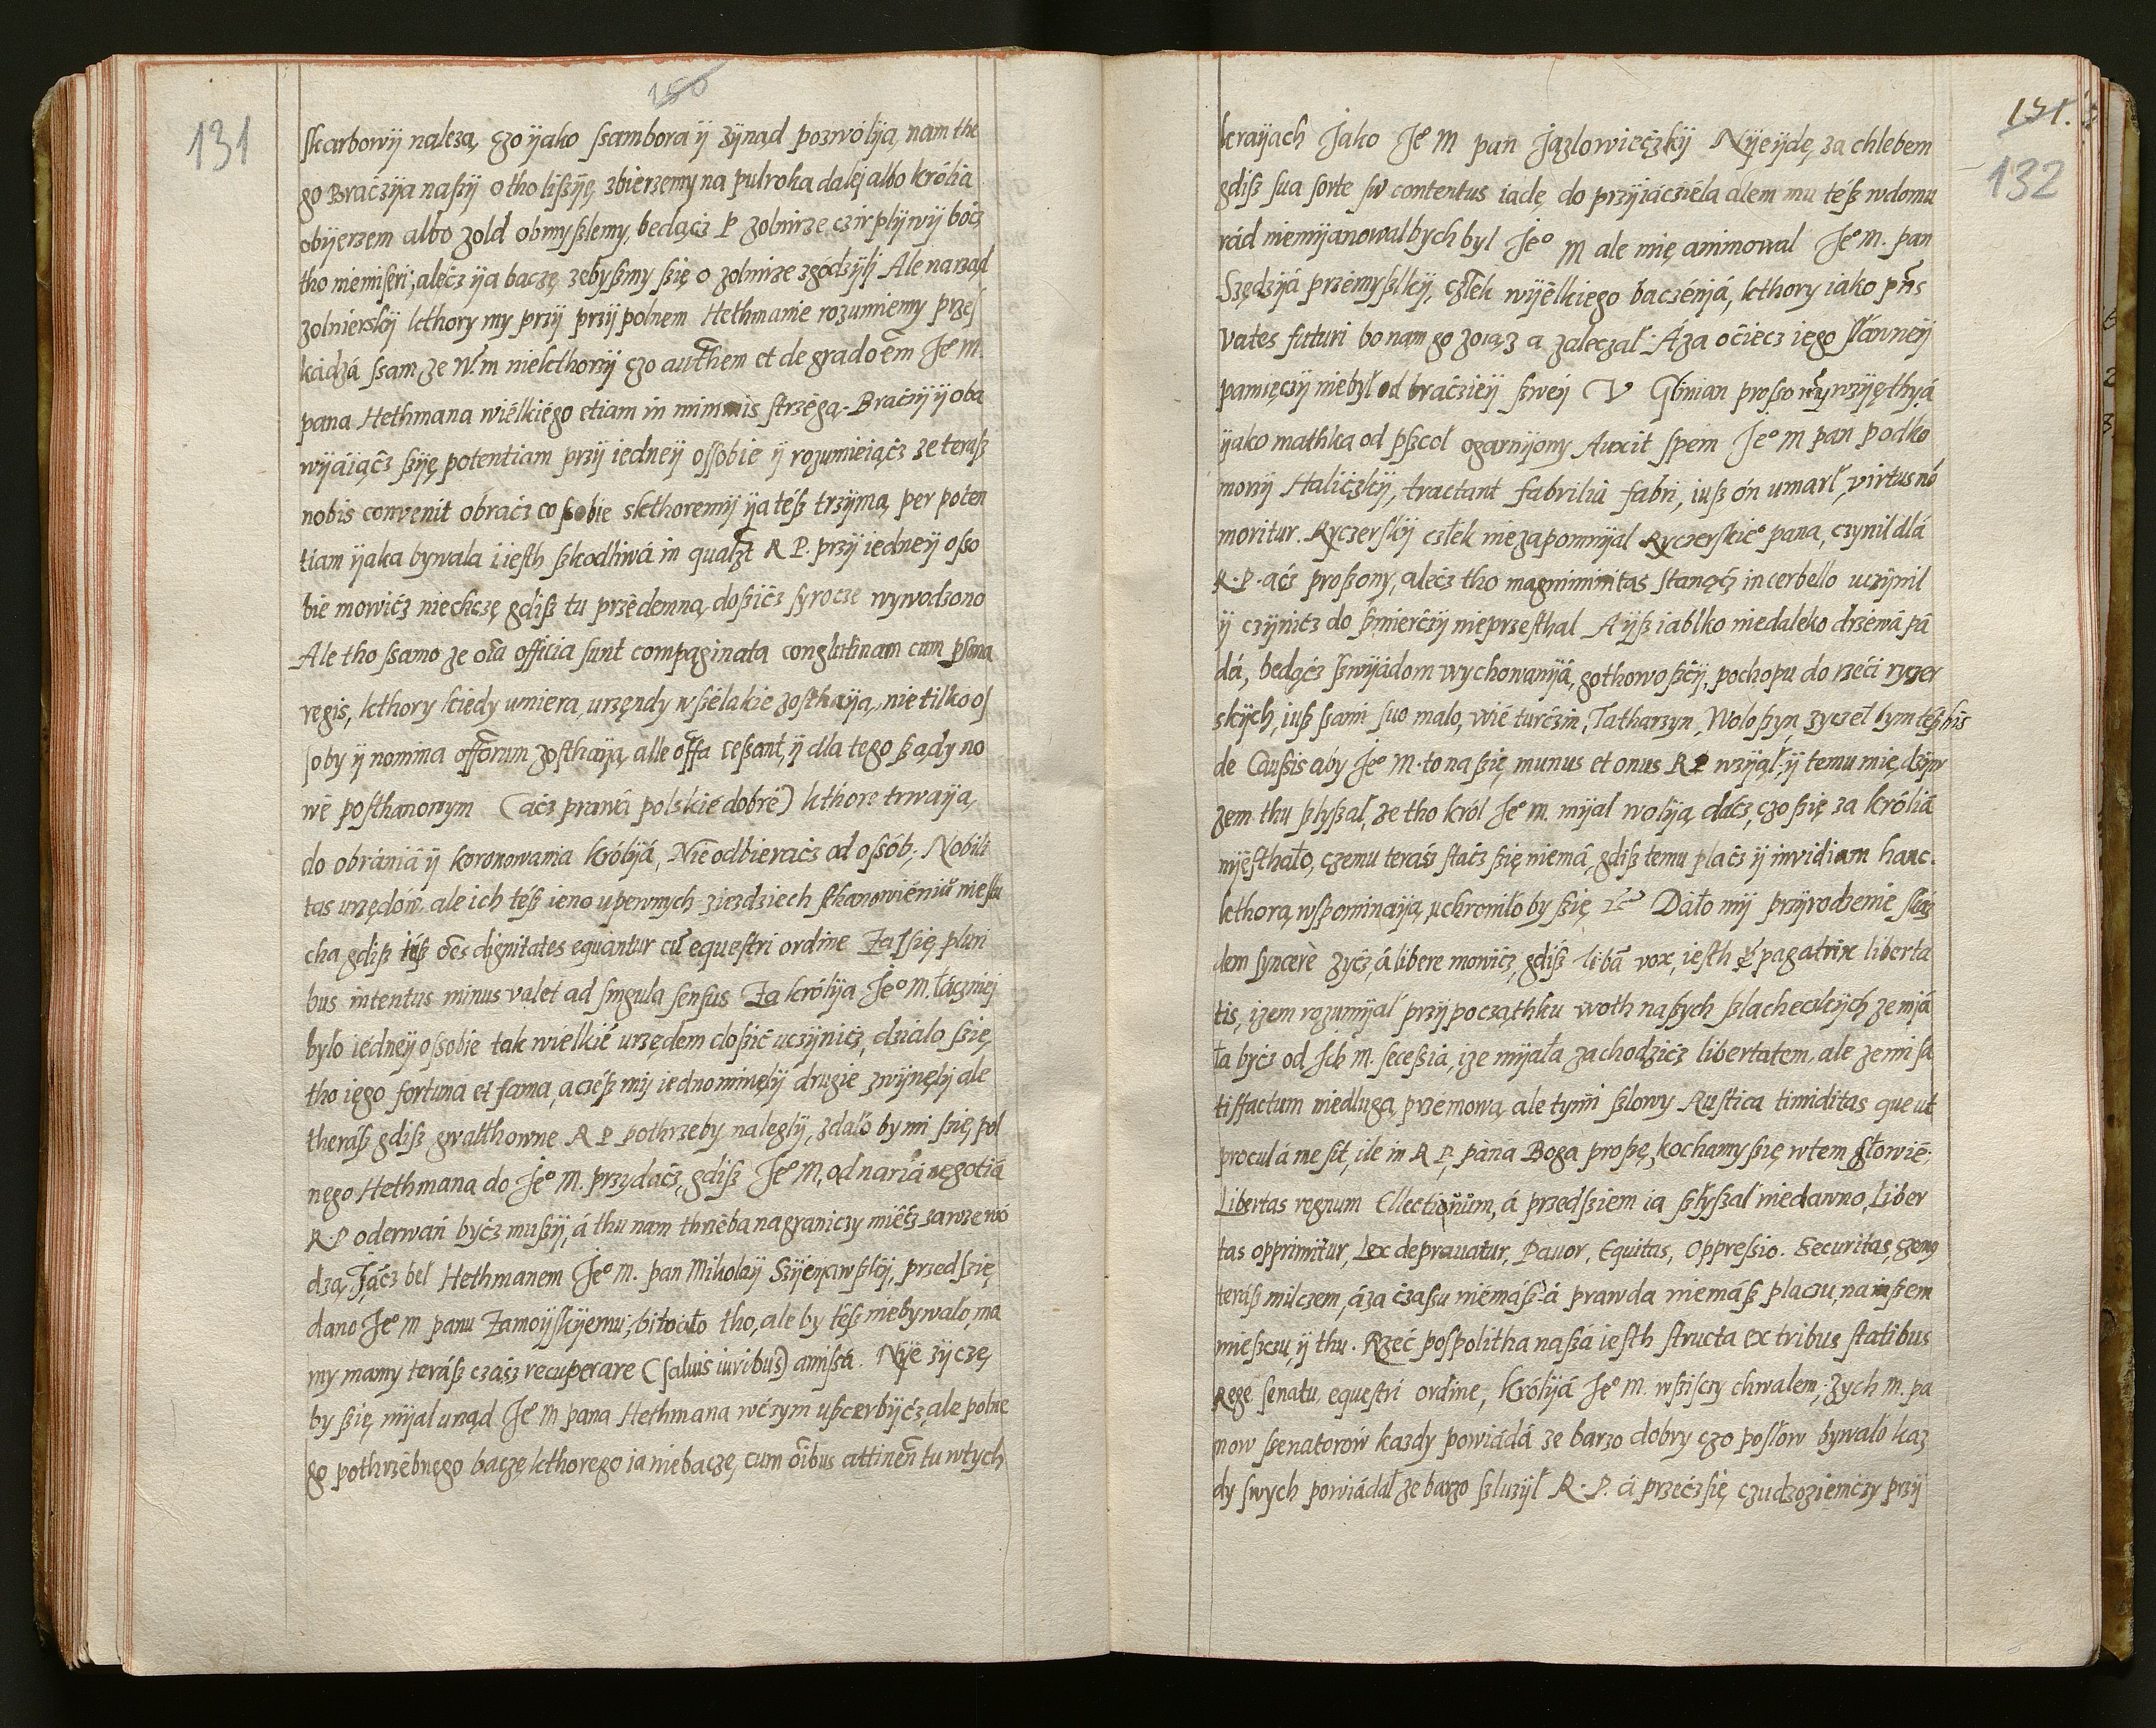 131
150
skarbowÿ naleza, czo ÿako ssambora ÿ zÿnąd pozwolÿa, nam the
go Braczÿa naszÿ o tho liszÿę zbierzemy na pulroka dalej albo królia
obÿerzem albo zold obmyszlemy, bedącz P zolnirze czirplÿwÿ bocz
tho niemiseri; alecz ÿa baczę zebyszmy szię o zolnirze zgódzÿlj Ale narząd
zolnierskÿ kthory my przÿ przÿ polnem Hethmanie rozumiemy przes
kadzá ssam ze W. m niekthorzÿ czo authem et de gradoem Je M.
pana Hethmana wiélkiégo etiam in minimis strzégą. Braczÿ ÿ oba
wÿáiącz szÿę potentiam przÿ iedneÿ ossobie ÿ rozumieiącz ze terasz
nobis convenit obracz co sobie skthoremÿ ÿa tész trzÿma, per poten
tiam ÿaka bywala i iesth szkodliwá in qualzt R P. przÿ iedneÿ osso
bie mowicz niechczę gdisz tu przedemną doszicz syrocze wywodzono
Ale tho ssamo ze oia officia sunt compaginata conglutinam cum psona
regis, kthory kiedy umiera, urzędy wsiélakie zosthaÿa, nie tilko os
soby ÿ nomina offorum zosthaÿa, alle offa cessant, ÿ dla tego sządy no
wé posthanowym (acz prawá polskié dobré) kthore trwaÿa,
do obrániá ÿ koronowania Królÿá, Nieodbieracz od ossób. Nobili
tas urzędów, ale ich tész ieno upewnych ziezdziech sthanowiéniu niesłu
cha gdisz tész oes dignitates equantur cu equestri ordine Zassię pluri
bus intentus minus valet ad singula sensus Za królÿa Je° M. łacziniej
bylo iedneÿ ossobie tak wielkié urzędem doszic uczynicz, dzialo szię
tho iego fortuna et fama, aczész mÿ iedno minęlÿ drugie zwÿnęlÿ ale
therász gdisz gwalthowne R P pothrzeby naleglÿ, zdalo by mi szię pol
nego Hethmana do Je° M. przydacz, gdisz Je° M. od naria negotiá
R. P oderwan bycz muszÿ, á thu nam thrzéba nagraniczy miécz zawzewo
dzą, Jácz bel Hethmanem Je° M. pan Mikolaÿ Szÿenÿawskÿ, przedszię
dano Je° M panu Zamoÿskÿemu; bito ato tho, ale by tész niebywalo, ma
my mamy terász czász recuperare (saluis iuribus) amissa. Nÿe zÿczę
by szię mÿal urząd Je° M pana Hethmana wczym uszczerbÿcz, ale polne
go pothrzébnego baczę kthorego ia niebaczę, cum oibus attinen tu wtych
131.
132
kraÿach Jako Je° M pan Jazlowieczkÿ Nÿeÿdę za chlebem
gdisz sua sorte sw contentus iadę do przÿiácziéla alem mu tész wdomu
rád niemÿanowalbych byl Je° M ale mię animowal Je° M. pan
Szędzÿá przemyszlkÿ, człek wÿélkiego baczénÿá, kthory iako pns
Vates futuri bo nam go zowąz a zaleczal: Áza ociecz iego sławneÿ
pamięczÿ niebył od braczieÿ szweÿ V Glinian proszo ny wzÿęthÿá
ÿako mathka od pszcol ogarnÿony Auxit spem Je° M pan podko
morzÿ Haliczkÿ, tractant fabrilia fabri, iusz ón umarł, virtus nó
moritur. Ryczerskÿ człek niezapomnÿal Ryczerskie° pana, czynil dlá
R. P. acz proszony, alecz tho magniminitas stanącz in cerbello uczÿnil
ÿ czÿnicz do szmierczÿ nieprzesthal Aÿsz iablko niedaleko drzewá pá
dá, bedącz szwÿádom wychowanÿá, gothowosczÿ, pochopu do rzeci ryczer
skÿch, iusz ssami suo malo, wié turczin, Tatharzyn, Woloszyn, zyczeł bym tész his
de Caussis aby Je° M. to na szię munus et onus R P wzÿął, ÿ temu mię dzÿw
zem thu szlyszal, ze tho król Je° M. mÿal wolÿą dácz, czo szię za królá
nÿésthało, czemu terász stacz szię niemá, gdisz temu placz ÿ invidiam hanc.
kthorą wspominaÿą, uchroniło by szię etc Dało mÿ przÿrodzenie skaz
dem syncerè zycz, á libere mowicz, gdisz libá vox, iesth pagatrix liberta
tis, izem rozumÿal przÿ początkhu woth naszych szlacheckÿch ze mÿá
ła bycz od Ich M. secessia, ize mÿała zachodzicz libertatem, ale zemi sa
tisfactum niedlugą przemową, ale tymi szlowy Rustica timiditas que ut
procul á me sit, ile in R P. pána Boga proszę, kochamy szię wtem Słowié;
Libertas regnum Ellectionum, á przedsziem ia szlyszal niedawno, Liber
tas opprimitur, Lex deprauatur, Pauor, Equitas, Oppressio. Securitas, czemu
terász milczem, áza czassu niémász á prawda niemász placzu, na inszem
mieszczu, ÿ thu. Rzéc pospolitha naszá iesth structa ex tribus statibus
Rege senatu equestri ordine, Królÿá Je° M. wszisczy chwalem, Jych M. pa
now ssenatorów kazdy powiádá ze barzo dobry czo posłów bywalo kaz
dy swych powiádał ze barzo szluzÿl R. P. á przeczsię czudzoziemczy przÿ